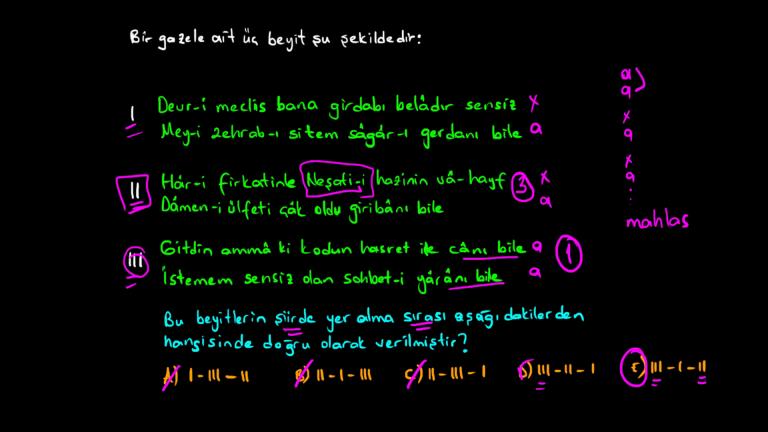 Bir gazele ait üç beyit şu şekildedir:
I Devr-i meclis bana girdabı belâdır sensiz x
Mey-i zehrab-ı sitem sâgâr-ı gerdanı bile a
II Hâr-i firkatinle Neşati-i hazinin vâ-hayf 3 x
Dâmen-i ülfeti çâk oldu giribânı bile a
III Gitdin ammâ ki kodun hasret ile cânı bile a 1
İstemem sensiz olan sohbet-i yârânı bile a
a
a
x
a
x
a
mahlas
Bu beyitlerin şiirde yer alma sırası aşağıdakilerden
hangisinde doğru olarak verilmiştir?
A) I - III - II B) II - I - III C) II - III - I D) III - II - I E) III - I - II